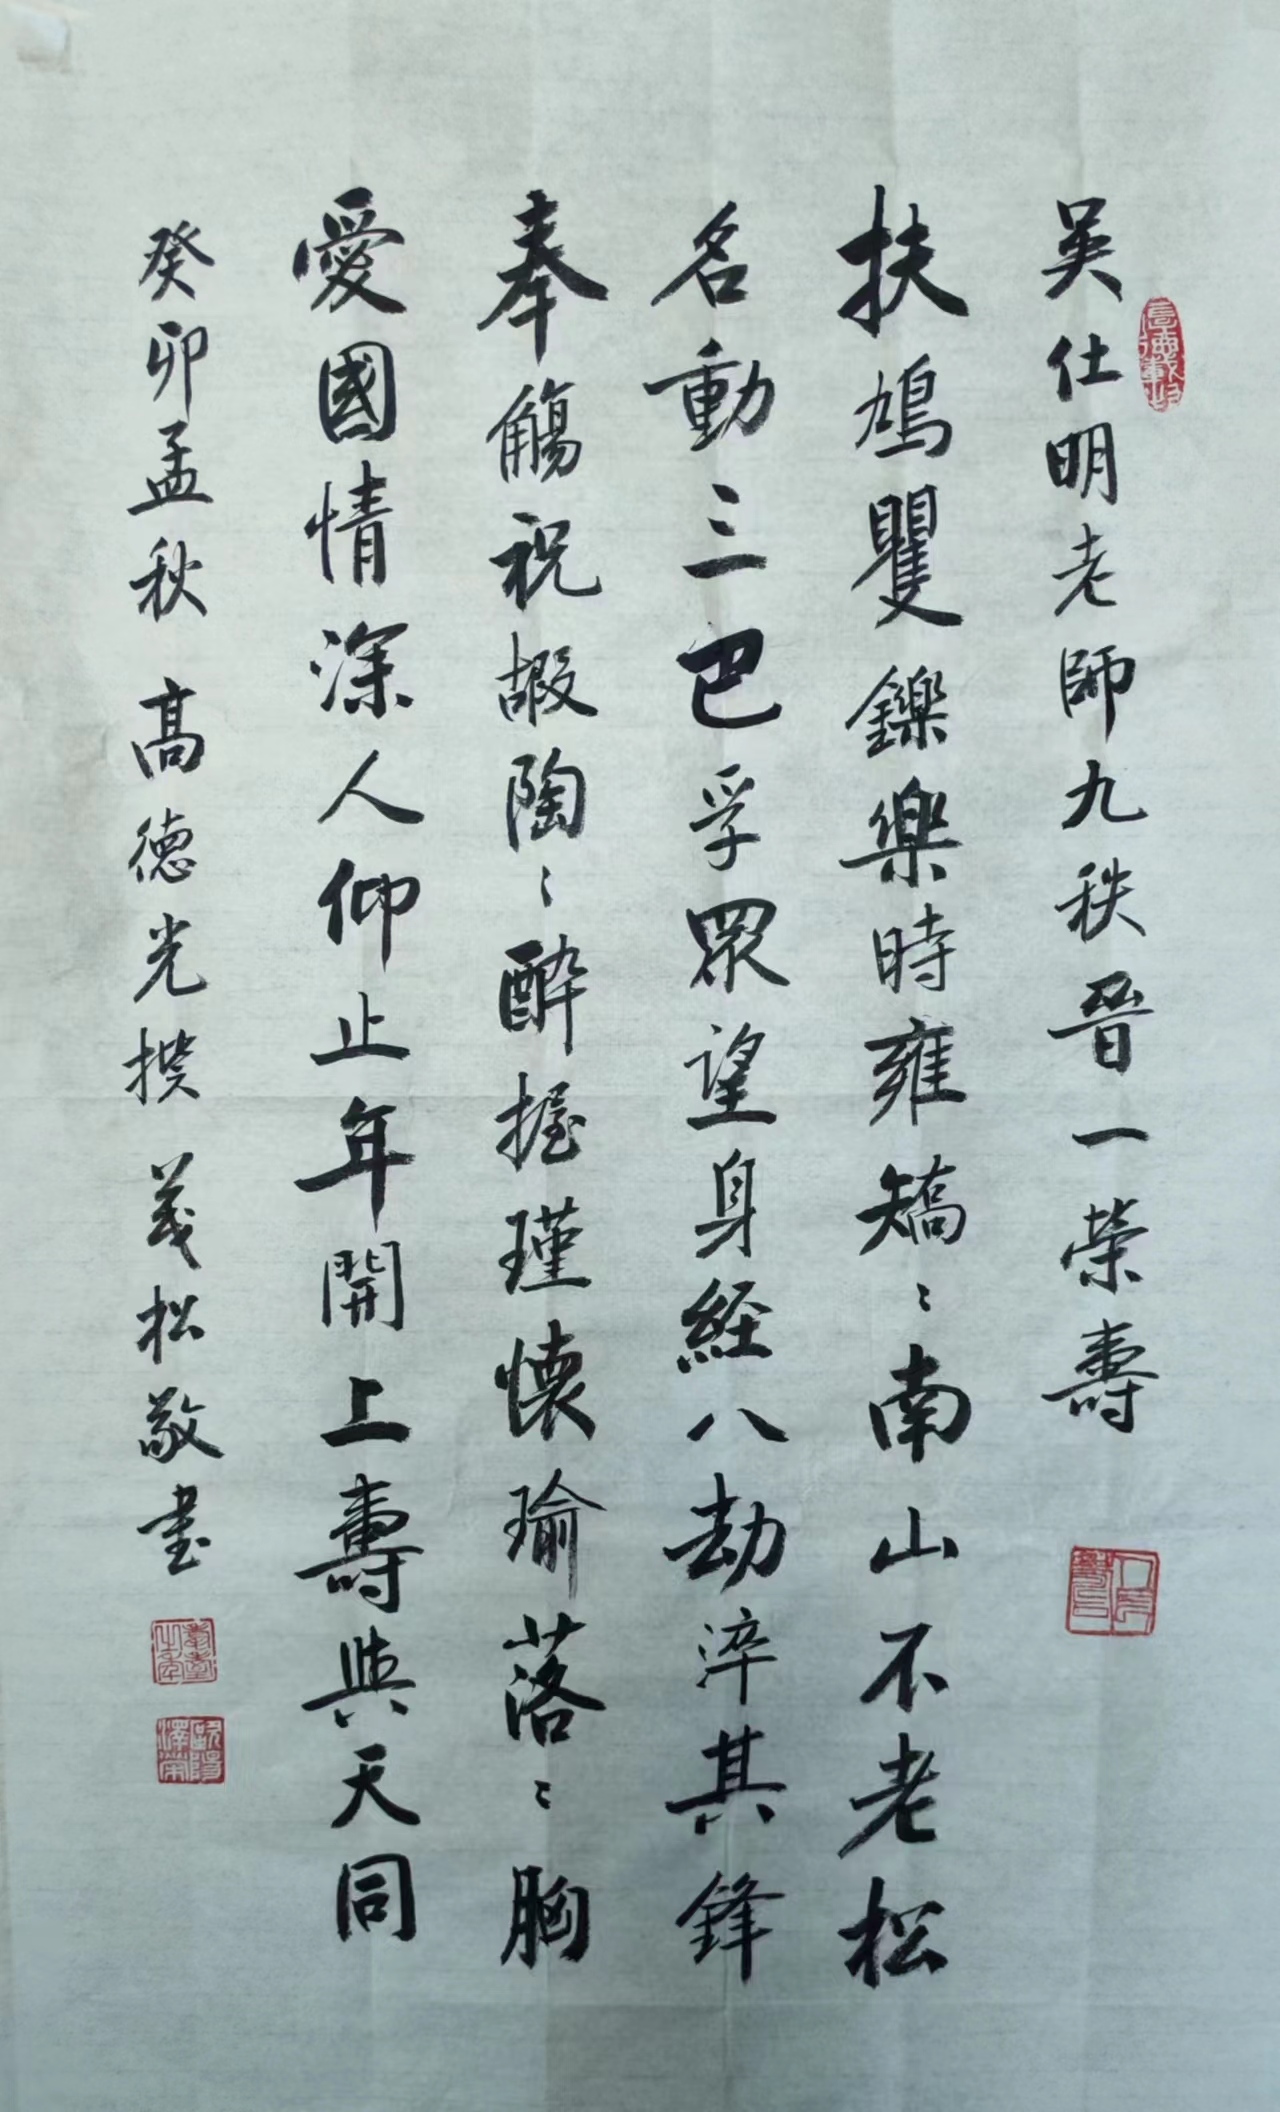 吳仕明老師九秩晉一榮壽
扶鳩矍鑠樂時雍矯〻南山不老松
名動三巴孚眾望身經八劫淬其鋒
奉觴祝嘏陶〻醉握瑾懷瑜落〻胸
愛國情深人仰止年開上壽與天同
癸卯孟秋 高德光撰 義松敬書